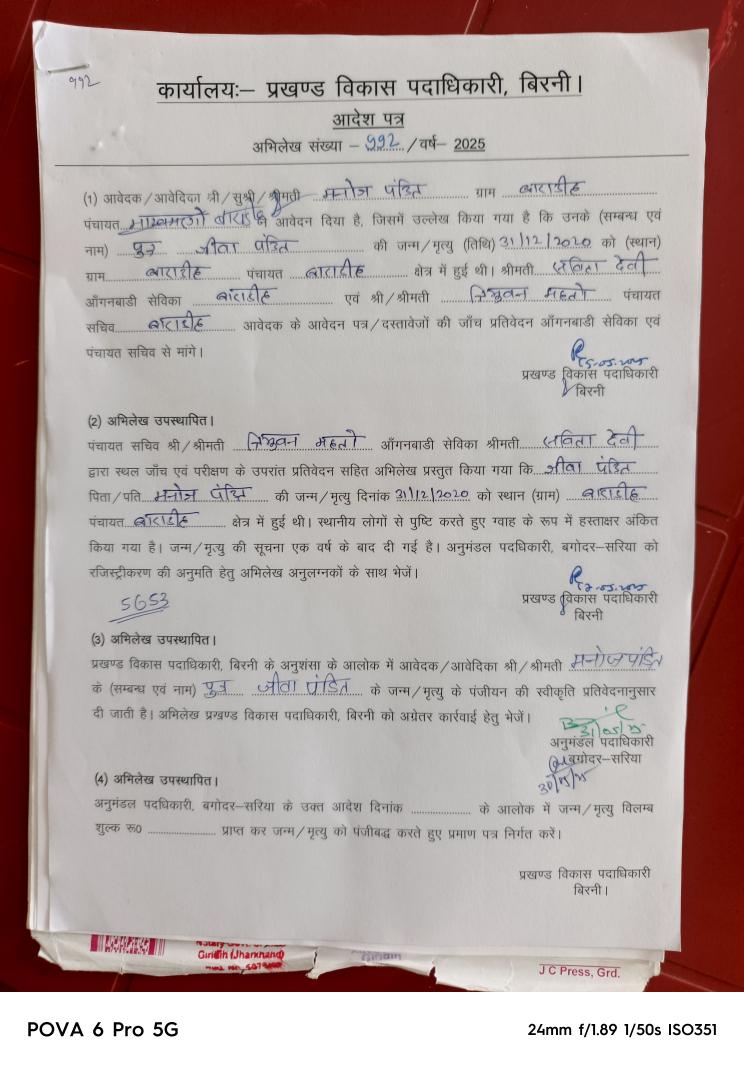 992
कार्यालयः– प्रखण्ड विकास पदाधिकारी, बिरनी।
आदेश पत्र
अभिलेख संख्या – 992 /वर्ष– 2025
(1) आवेदक/आवेदिका श्री/सुश्री/श्रीमती मनोज पंडित ग्राम बाराडीह
पंचायत बाराडीह ने आवेदन दिया है, जिसमें उल्लेख किया गया है कि उनके (सम्बन्ध एवं
नाम) पुत्र जीवा पंडित की जन्म/मृत्यु (तिथि) 31/12/2020 को (स्थान)
ग्राम बाराडीह पंचायत बाराडीह क्षेत्र में हुई थी। श्रीमती सविता देवी
आँगनबाडी सेविका बाराडीह एवं श्री/श्रीमती त्रिभुवन महतो पंचायत
सचिव बाराडीह आवेदक के आवेदन पत्र/दस्तावेजों की जाँच प्रतिवेदन आँगनबाडी सेविका एवं
पंचायत सचिव से मांगे।
प्रखण्ड विकास पदाधिकारी
बिरनी
(2) अभिलेख उपस्थापित।
पंचायत सचिव श्री/श्रीमती त्रिभुवन महतो आँगनबाडी सेविका श्रीमती सविता देवी
द्वारा स्थल जाँच एवं परीक्षण के उपरांत प्रतिवेदन सहित अभिलेख प्रस्तुत किया गया कि जीवा पंडित
पिता/पति मनोज पंडित की जन्म/मृत्यु दिनांक 31/12/2020 को स्थान (ग्राम) बाराडीह
पंचायत बाराडीह क्षेत्र में हुई थी। स्थानीय लोगों से पुष्टि करते हुए ग्वाह के रूप में हस्ताक्षर अंकित
किया गया है। जन्म/मृत्यु की सूचना एक वर्ष के बाद दी गई है। अनुमंडल पदधिकारी, बगोदर–सरिया को
रजिस्ट्रीकरण की अनुमति हेतु अभिलेख अनुलग्नकों के साथ भेजें।
प्रखण्ड विकास पदाधिकारी
बिरनी
5653
(3) अभिलेख उपस्थापित।
प्रखण्ड विकास पदाधिकारी, बिरनी के अनुशंसा के आलोक में आवेदक/आवेदिका श्री/श्रीमती मनोज पंडित
के (सम्बन्ध एवं नाम) पुत्र जीवा पंडित के जन्म/मृत्यु के पंजीयन की स्वीकृति प्रतिवेदनानुसार
दी जाती है। अभिलेख प्रखण्ड विकास पदाधिकारी, बिरनी को अग्रेतर कार्रवाई हेतु भेजें।
31/05/25
अनुमंडल पदाधिकारी
बगोदर–सरिया
(4) अभिलेख उपस्थापित।
अनुमंडल पदाधिकारी, बगोदर–सरिया के उक्त आदेश दिनांक .................... के आलोक में जन्म/मृत्यु विलम्ब
शुल्क रू0 .................... प्राप्त कर जन्म/मृत्यु को पंजीबद्ध करते हुए प्रमाण पत्र निर्गत करें।
प्रखण्ड विकास पदाधिकारी
बिरनी।
Giridih (Jharkhand)
J C Press, Grd.
POVA 6 Pro 5G
24mm f/1.89 1/50s ISO351